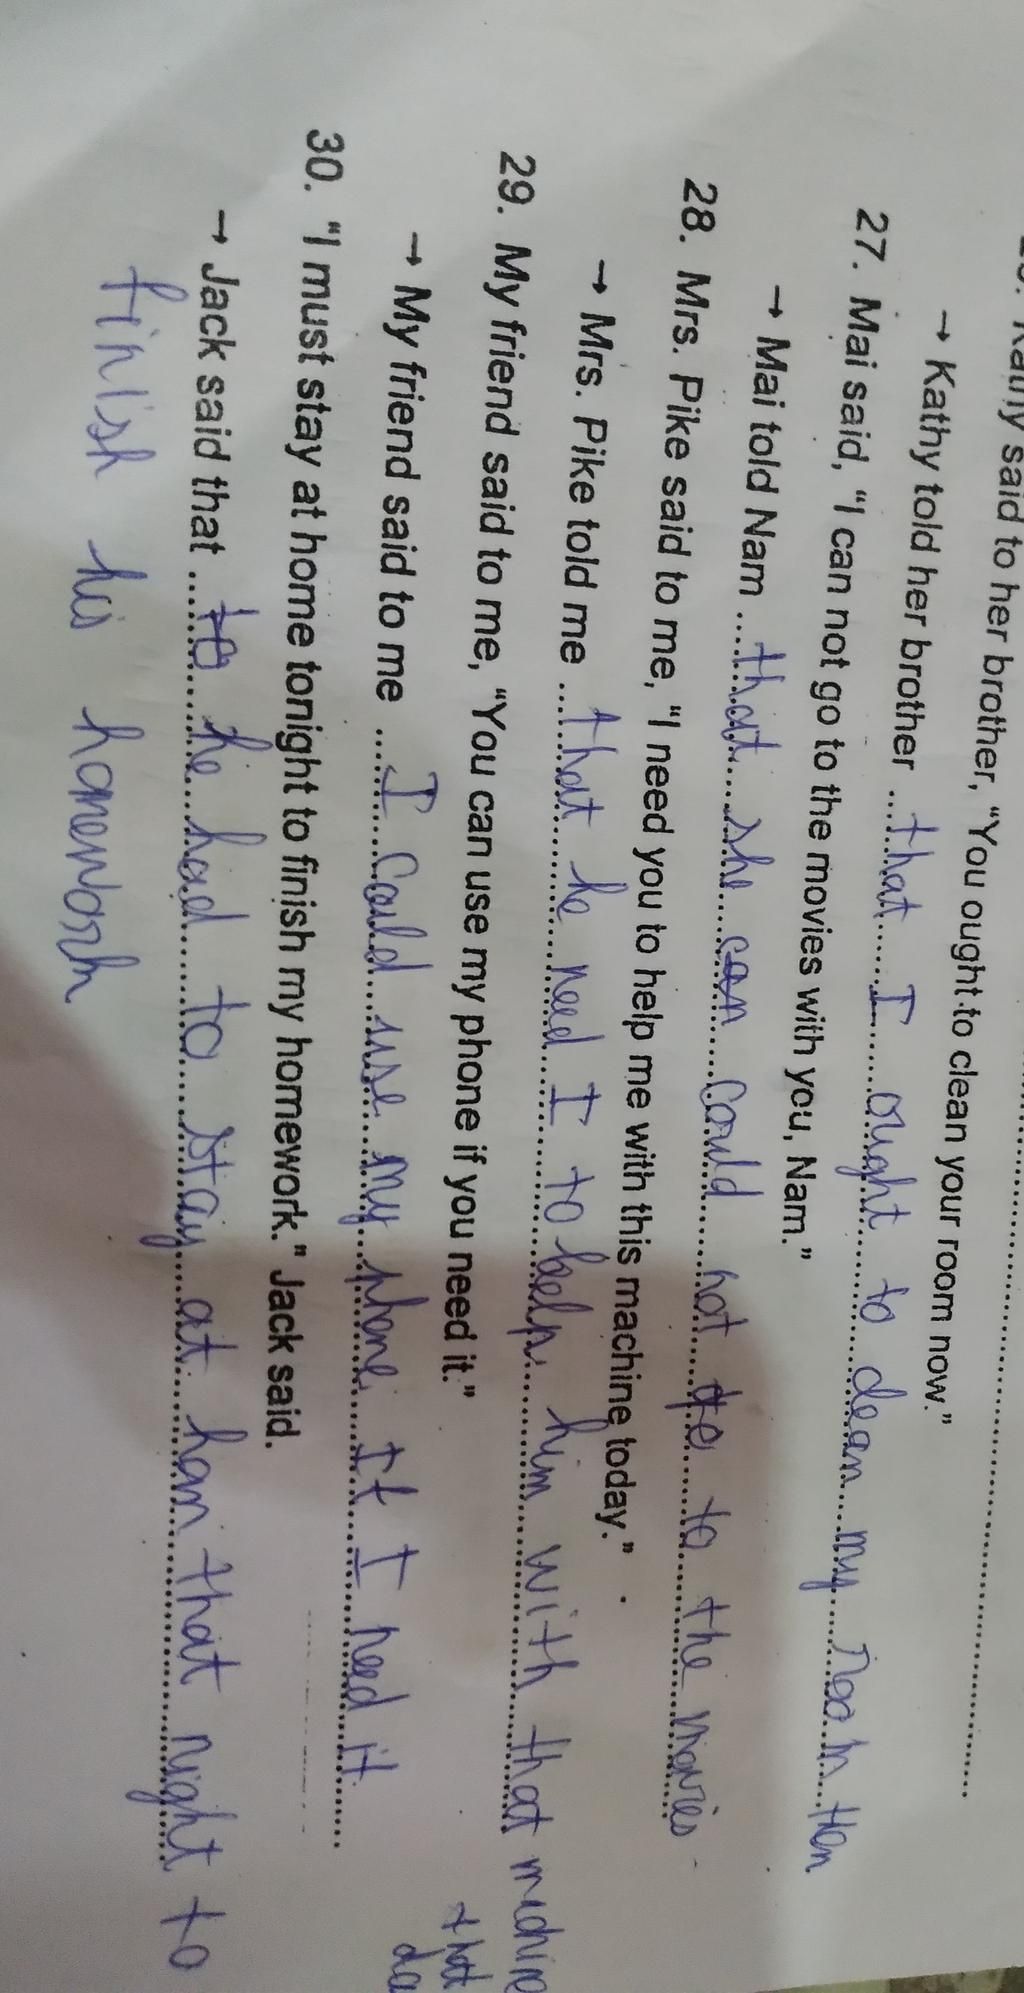 Kathy said to her brother, "You ought to clean your room now."
→ Kathy told her brother ...that I ought to clean my room then
27. Mai said, "I can not go to the movies with you, Nam."
→ Mai told Nam ...that she can could not to the movies
28. Mrs. Pike said to me, "I need you to help me with this machine today."
→ Mrs. Pike told me ...that he need I to help him with that machine
that
da
29. My friend said to me, "You can use my phone if you need it."
→ My friend said to me ...I could use my phone if I need it
30. "I must stay at home tonight to finish my homework." Jack said.
→ Jack said that ...to he had to stay at hom that night to
finish his homework